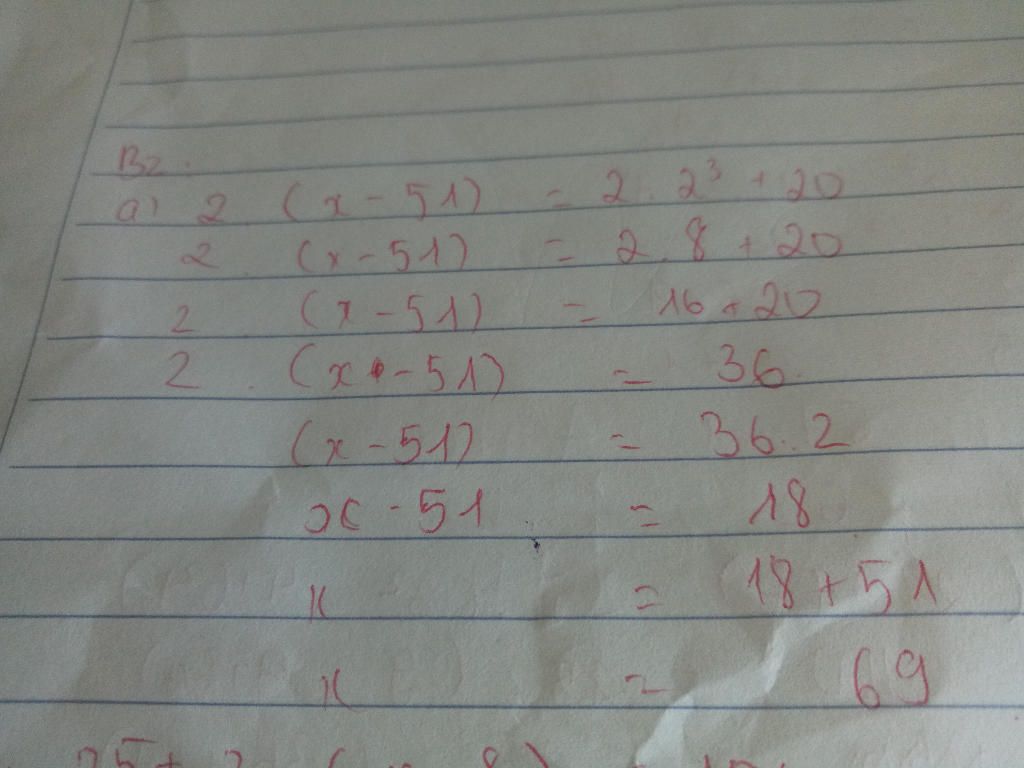 B2.
a) 2 (x - 51) = 2.2³ + 20
2 (x - 51) = 2.8 + 20
2 (x - 51) = 16 + 20
2. (x - 51) = 36
(x - 51) = 36:2
x - 51 = 18
x = 18 + 51
x = 69